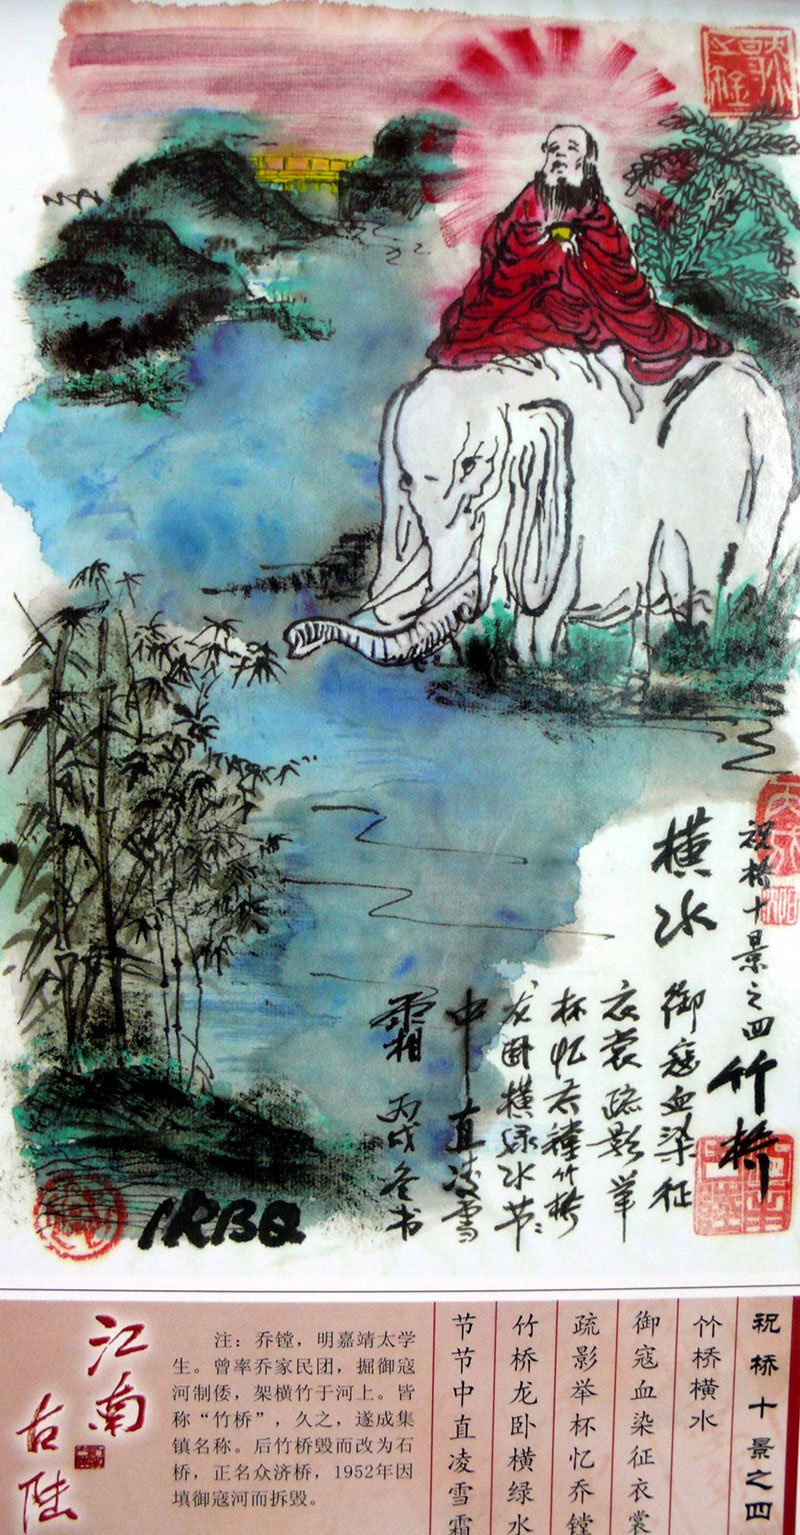 祝桥十景之四
竹桥
横水
御寇血染征
衣裳疏影举
杯忆乔镗竹桥
龙卧横绿水节々
中直凌雪
霜 丙戌冬书
祝桥十景之四
竹桥横水
御寇血染征衣裳
疏影举杯忆乔镗
竹桥龙卧横绿水
节节中直凌雪霜
注：乔镗，明嘉靖太学
生。曾率乔家民团，掘御寇
河制倭，架横竹于河上。皆
称“竹桥”，久之，遂成集
镇名称。后竹桥毁而改为石
桥，正名众济桥，1952年因
填御寇河而拆毁。
江南
古陆